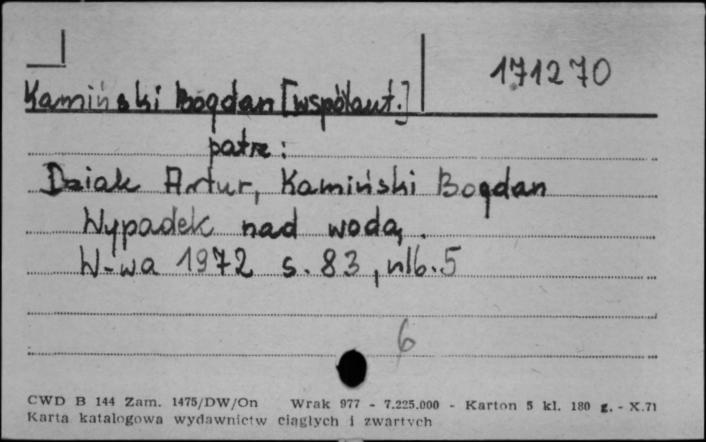 171270
Kamiński Bogdan [współaut.]
patrz:
Dziak Artur, Kamiński Bogdan
Wypadek nad wodą.
W-wa 1972 s. 83, nlb. 5
6
CWD B 144 Zam. 1475/DW/On Wrak 977 - 7.225.000 - Karton 5 kl. 180 g. - X.71
Karta katalogowa wydawnictw ciągłych i zwartych